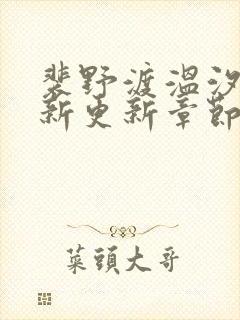 裴野渡温汐
新更新章節
菜頭大哥